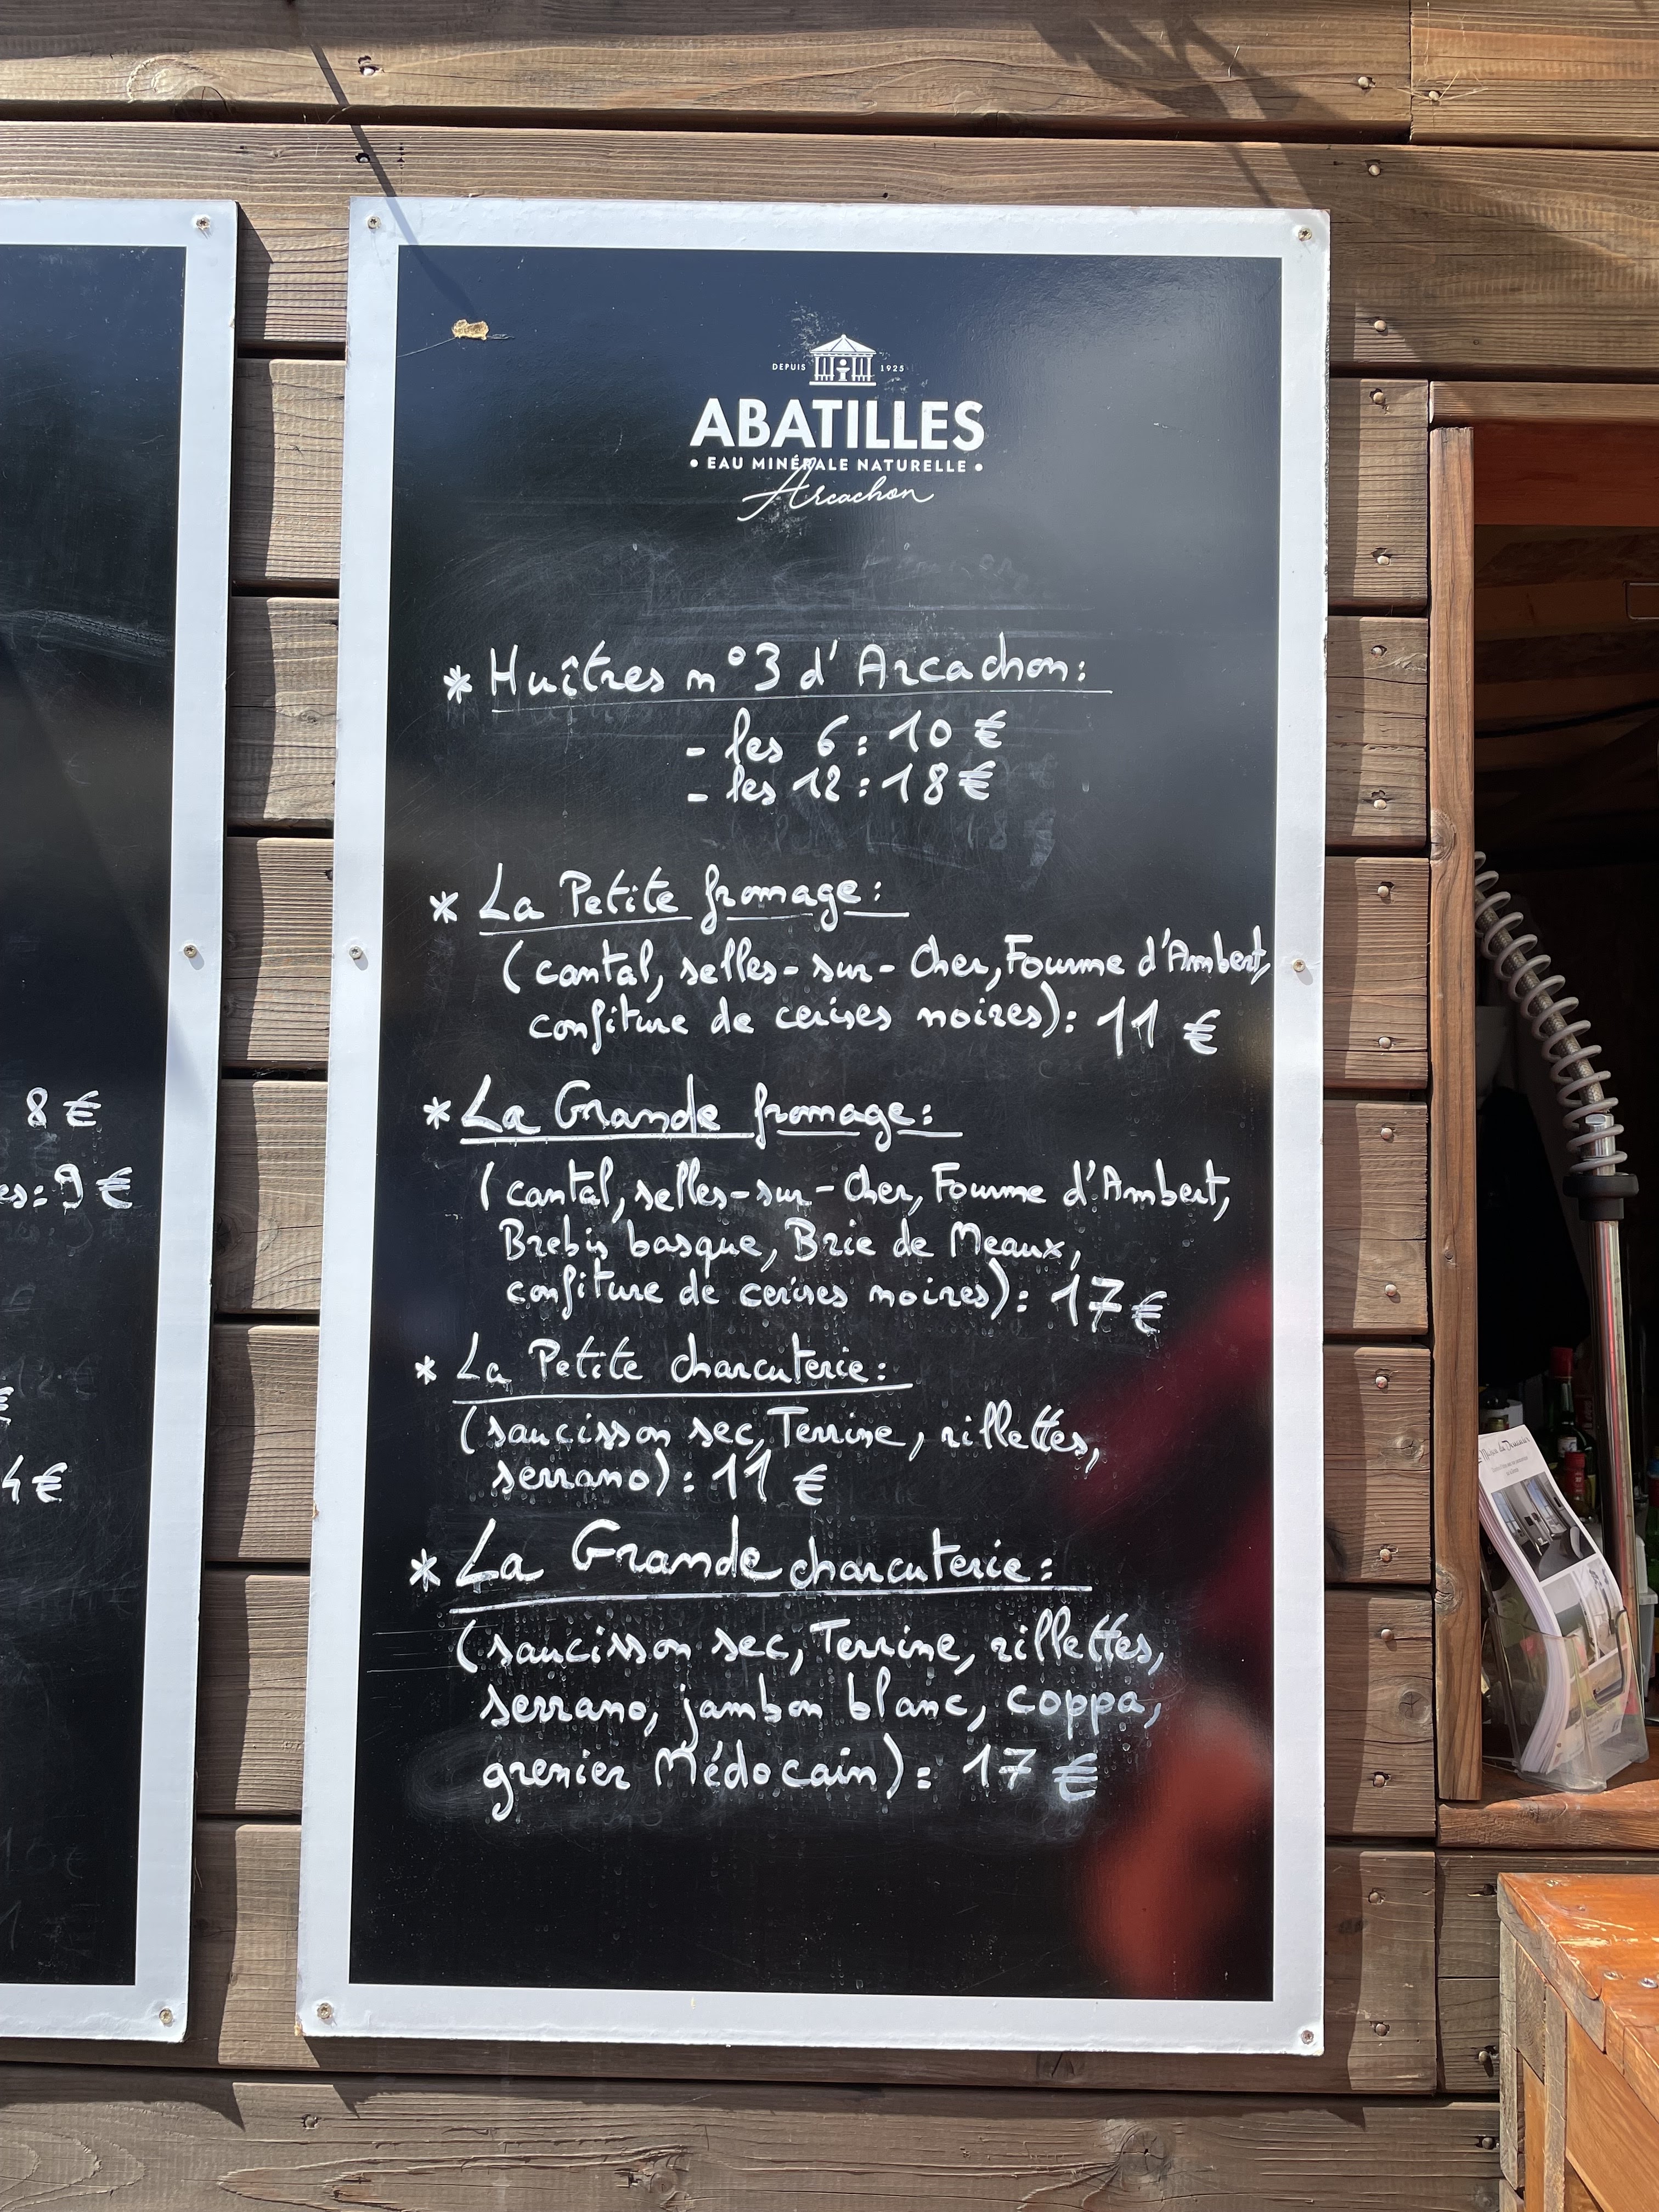 8 €
es: 9 €
4 €
DEPUIS 1925
ABATILLES
• EAU MINÉRALE NATURELLE •
Arcachon
* Huîtres n°3 d'Arcachon:
- les 6 : 10 €
- les 12 : 18 €
* La Petite fromage :
(cantal, selles-sur-Cher, Fourme d'Ambert,
confiture de cerises noires) : 11 €
* La Grande fromage :
(cantal, selles-sur-Cher, Fourme d'Ambert,
Brebis basque, Brie de Meaux,
confiture de cerises noires) : 17 €
* La Petite charcuterie :
(saucisson sec, Terrine, rillettes,
serrano) : 11 €
* La Grande charcuterie :
(saucisson sec, Terrine, rillettes,
serrano, jambon blanc, coppa,
grenier Médocain) : 17 €